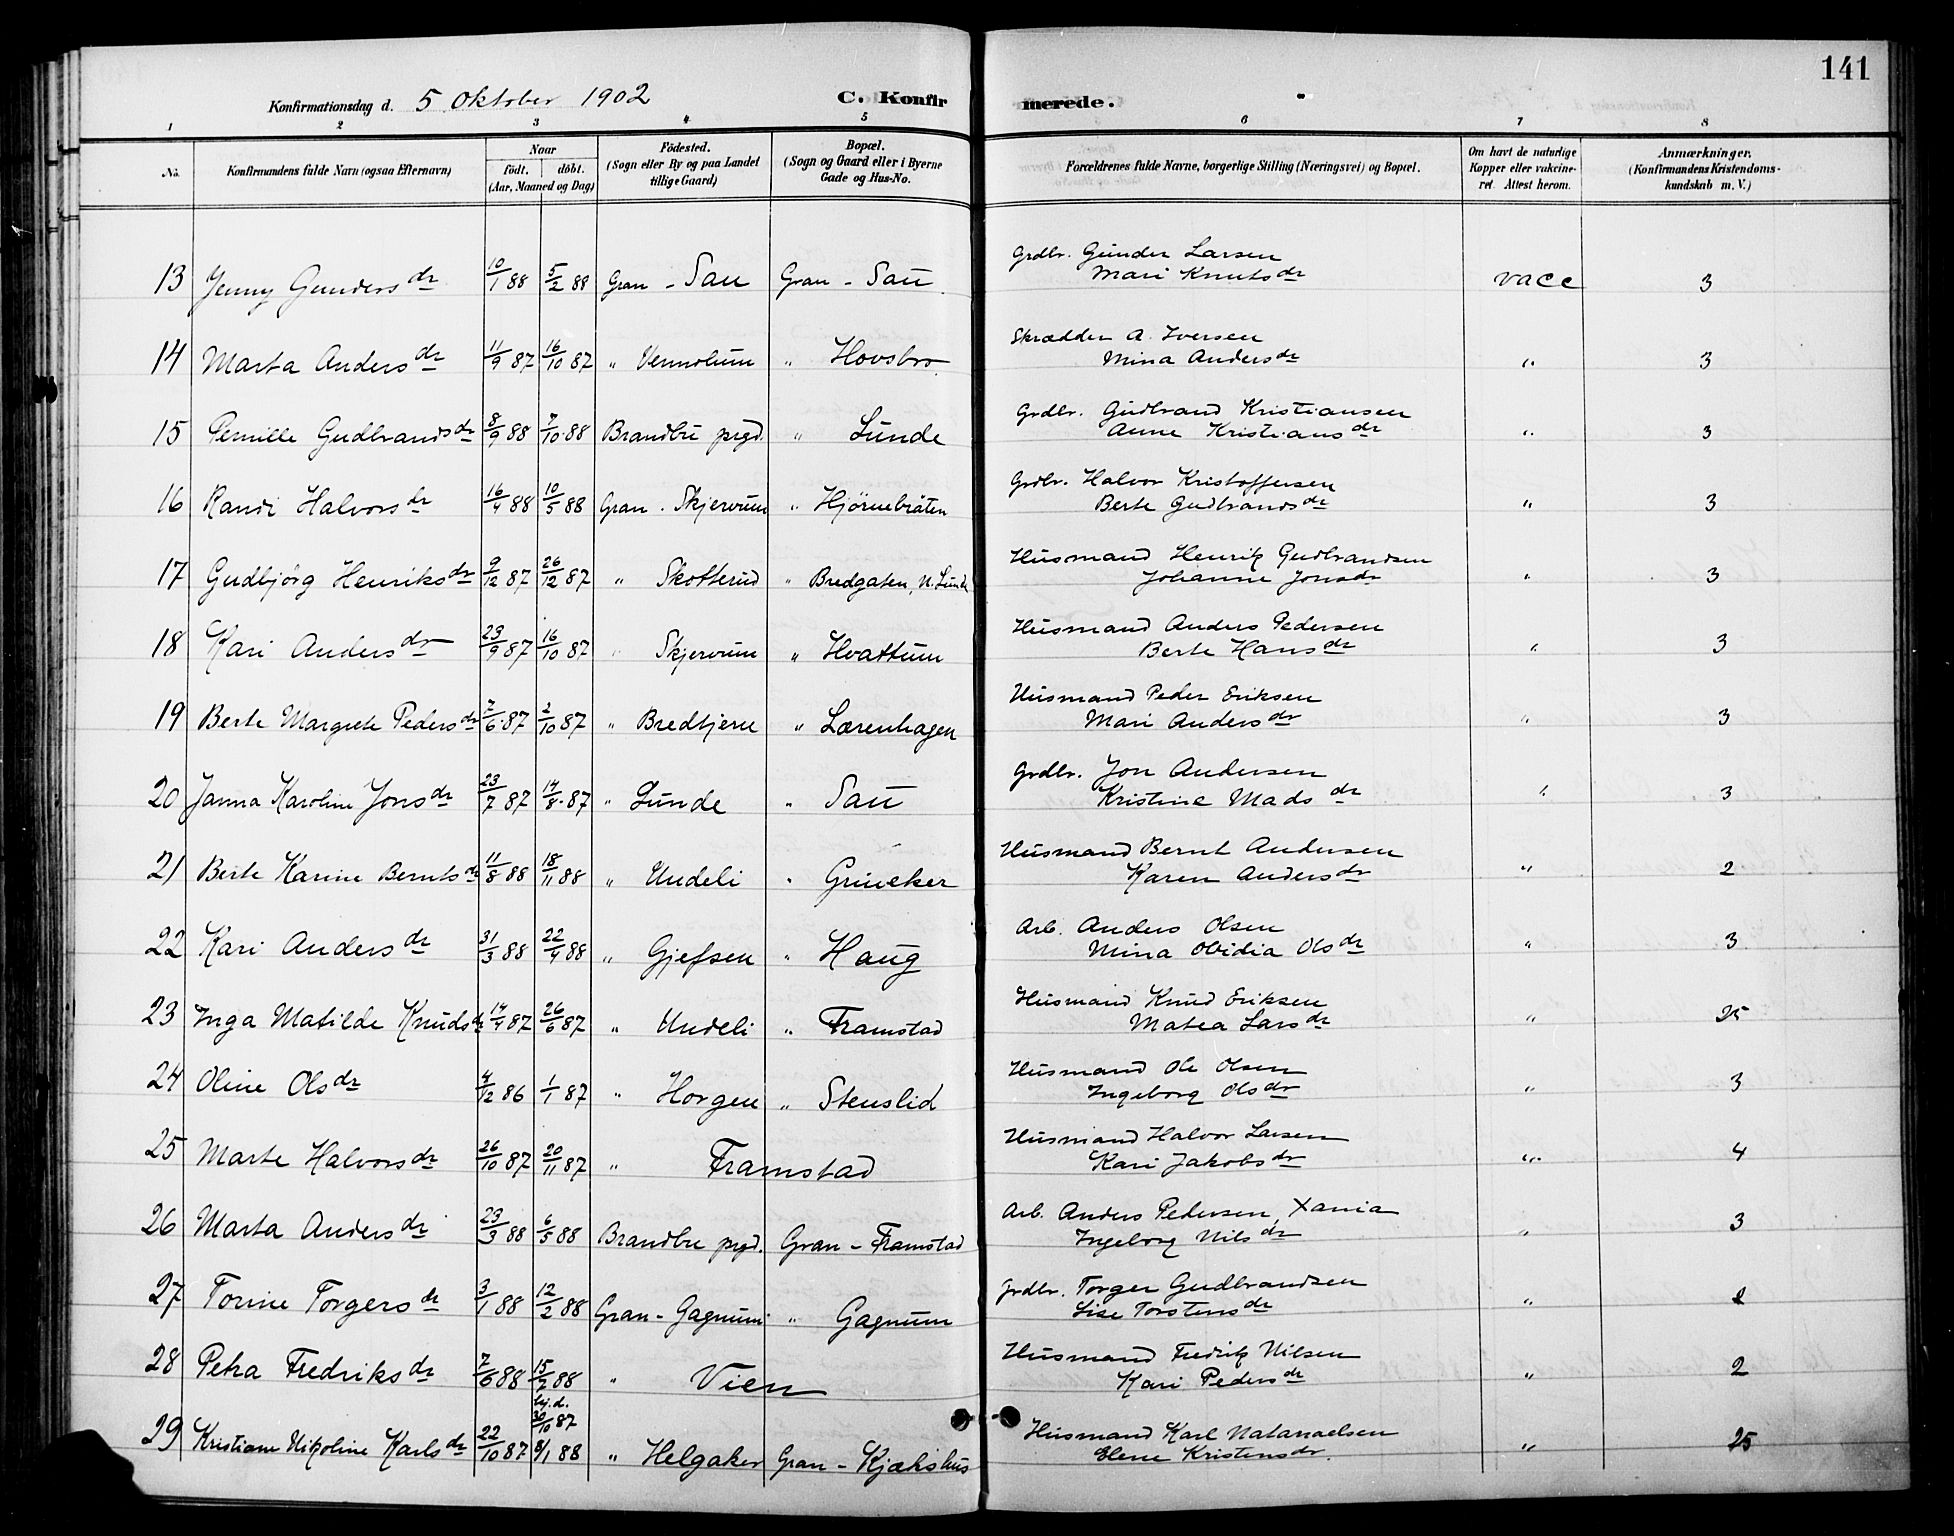 141
Konfirmationsdag d. 5 Oktober 1902 C. Konfirmerede.
1 2 3 4 5 6 7 8
No. Konfirmandens fulde Navn (ogsaa Efternavn) Naar født. døbt. (Aar, Maaned og Dag) Födested. (Sogn eller By og paa Landet tillige Gaard) Bopæl. (Sogn og Gaard eller i Byerne Gade og Hus-No. Forældrenes fulde Navne, borgerlige Stilling (Næringsvei) og Bopæl. Om havt de naturlige Kopper eller vakcineret. Attest herom. Anmærkninger. (Konfirmandens Kristendomskundskab m. V.)
13 Jenny Gundersdr 10/1 88 5/2 88 Gran - Sau Gran - Sau Grdbr. Gunder Larsen
Mari Knutsdr vacc 3
14 Marta Andersdr 11/9 87 16/10 87 " Vennolum " Hovsbro Skrædder A. Iversen
Mina Andersdr " 3
15 Pernille Gudbrandsdr 8/9 88 7/10 88 Brandbu prgd. " Lunde Grdbr. Gudbrand Kristiansen
Anne Kristiansdr " 3
16 Randi Halvorsdr 16/4 88 10/5 88 Gran - Skjervum " Hjörnebråten Grdbr. Halvor Kristoffersen
Berte Gudbrandsdr " 3
17 Gudbjörg Henriksdr 9/12 87 26/12 87 " Skotterud " Bredgaten, N. Lunde Husmand Henrik Gudbrandsen
Johanne Jonsdr " 3
18 Kari Andersdr 23/9 87 16/10 87 " Skjervum " Hvattum Husmand Anders Pedersen
Berte Hansdr " 3
19 Berte Margrete Pedersdr 7/6 87 2/10 87 " Bredtjern " Lærenhagen Husmand Peder Eriksen
Mari Andersdr " 3
20 Janna Karoline Jonsdr 23/7 87 14/8 87 " Lunde " Sau Grdbr. Jon Andersen
Kristine Madsdr " 3
21 Berte Karine Berntsdr 11/8 88 18/11 88 " Undeli " Grineker Husmand Bernt Andersen
Karen Andersdr " 2
22 Kari Andersdr 31/3 88 22/4 88 " Gjefsen " Haug Arb. Anders Olsen
Mina Obidia Olsdr " 3
23 Inga Matilde Knudsdr 14/4 87 26/6 87 " Undeli " Framstad Husmand Knud Eriksen
Matea Larsdr " 25
24 Oline Olsdr 4/12 86 1/1 87 " Horgen " Stenslid Husmand Ole Olsen
Ingeborg Olsdr " 3
25 Marte Halvorsdr 26/10 87 20/11 87 " Framstad Husmand Halvor Larsen
Kari Jakobsdr " 4
26 Marta Andersdr 23/3 88 6/5 88 Brandbu prgd. Gran - Framstad Arb. Anders Pedersen, Xania
Ingeborg Nilsdr " 3
27 Torine Torgersdr 3/1 88 12/2 88 Gran - Gagnum " Gagnum Grdbr. Torger Gudbrandsen
Lise Torstensdr "
28 Petra Fredriksdr 7/6 88 15/7 88 " Vien Husmand Fredrik Nilsen
Kari Pedersdr " 2
29 Kristiane Nikoline Karlsdr 22/10 87 hj.d. 30/10 87 8/1 88 " Helgaker Gran - Kjækshus Husmand Karl Natanaelsen
Elene Kristensdr. " 25